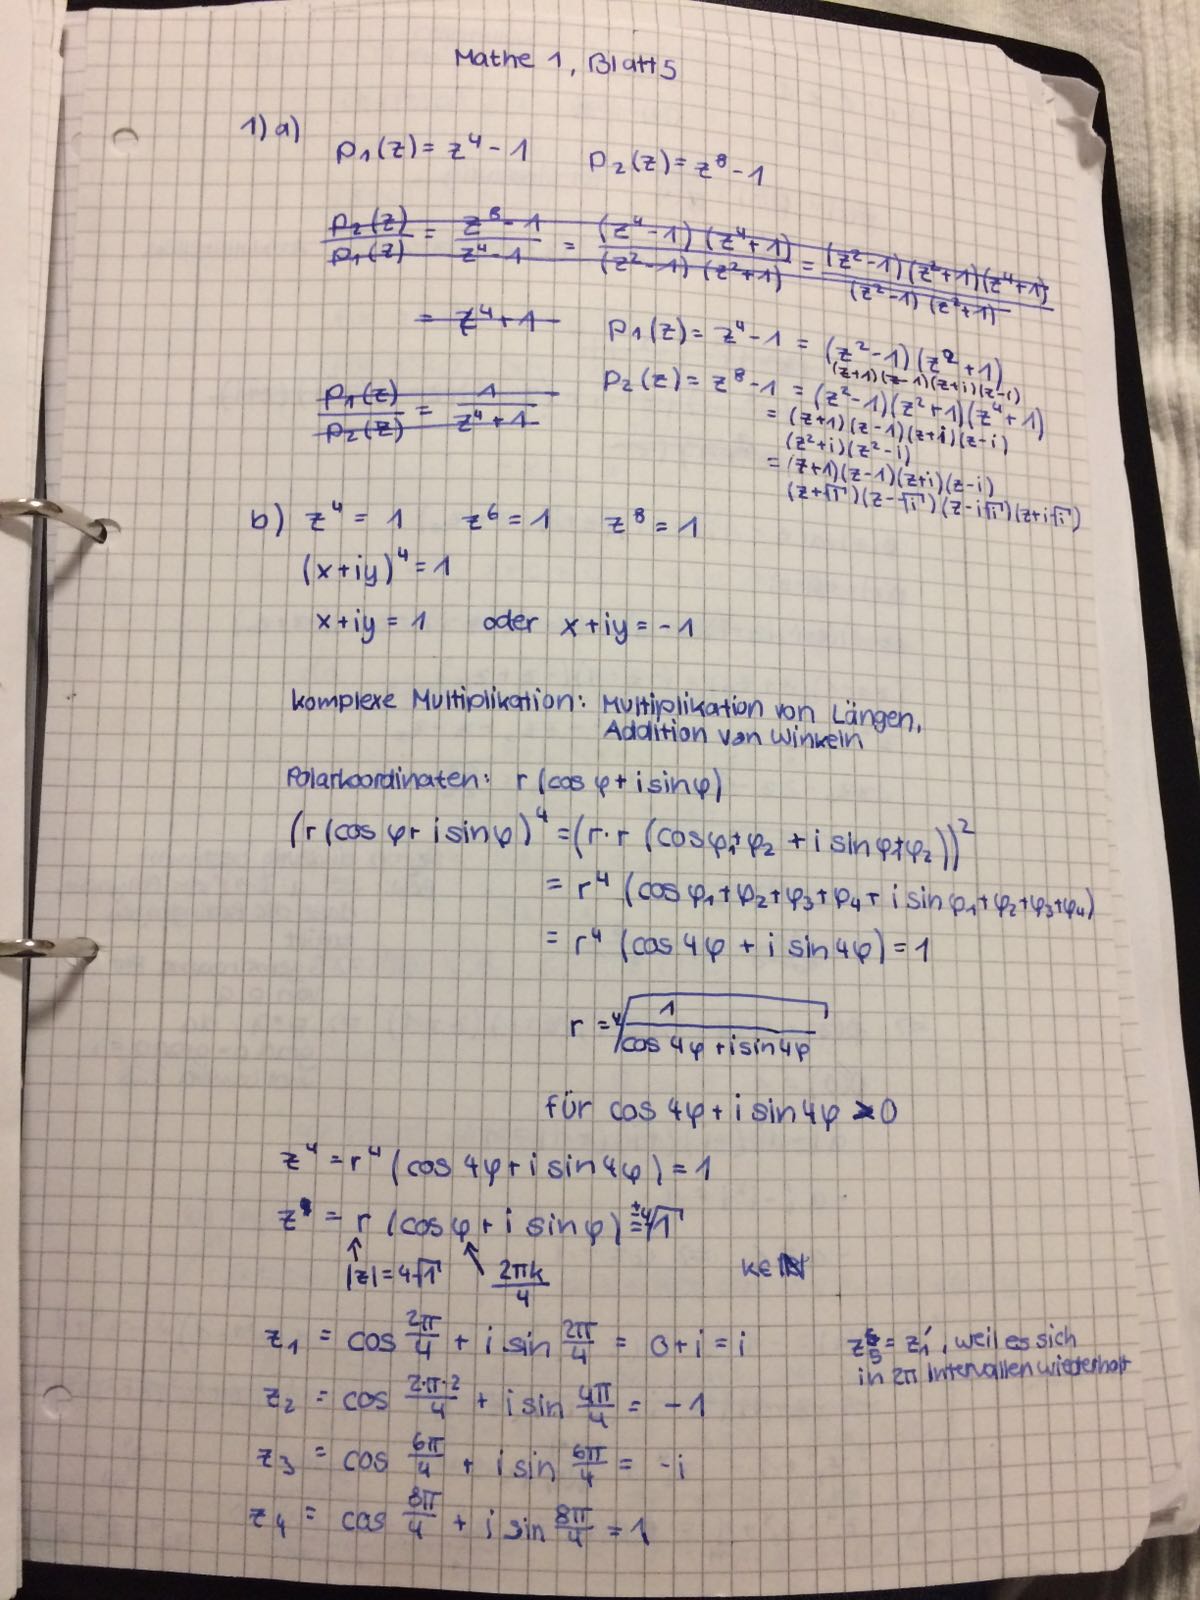 Mathe 1, Blatt 5
1) a)
p₁(z) = z⁴ - 1 p₂(z) = z⁸ - 1
p₂(z)/p₁(z) = (z⁸ - 1)/(z⁴ - 1) = (z⁴ - 1)(z⁴ + 1)/(z² - 1)(z² + 1) = (z² - 1)(z² + 1)(z⁴ + 1)/(z² - 1)(z² + 1)
= z⁴ + 1
p₁(z)/p₂(z) = 1/(z⁴ + 1)
p₁(z) = z⁴ - 1 = (z² - 1)(z² + 1)
(z+1)(z-1)(z+i)(z-i)
p₂(z) = z⁸ - 1 = (z² - 1)(z² + 1)(z⁴ + 1)
= (z+1)(z-1)(z+i)(z-i)
(z²+i)(z²-i)
= (z+1)(z-1)(z+i)(z-i)
(z+√i)(z-√i)(z-i√i)(z+i√i)
b) z⁴ = 1 z⁶ = 1 z⁸ = 1
(x+iy)⁴ = 1
x+iy = 1 oder x+iy = -1
komplexe Multiplikation: Multiplikation von Längen,
Addition von Winkeln
Polarkoordinaten: r(cos φ + i sin φ)
(r(cos φ + i sin φ)⁴ = (r·r (cos φ₁+φ₂ + i sin φ₁+φ₂))²
= r⁴ (cos φ₁+φ₂+φ₃+φ₄ + i sin φ₁+φ₂+φ₃+φ₄)
= r⁴ (cos 4φ + i sin 4φ) = 1
r = ⁴√(1/(cos 4φ + i sin 4φ))
für cos 4φ + i sin 4φ > 0
z⁴ = r⁴ (cos 4φ + i sin 4φ) = 1
z = r (cos φ + i sin φ) = ±⁴√1
|z| = 4√1 2πk/4 k∈ℕ
z₁ = cos 2π/4 + i sin 2π/4 = 0 + i = i
z₅ = z₁, weil es sich
in 2π Intervallen wiederholt
z₂ = cos 2·π·2/4 + i sin 4π/4 = -1
z₃ = cos 6π/4 + i sin 6π/4 = -i
z₄ = cos 8π/4 + i sin 8π/4 = 1